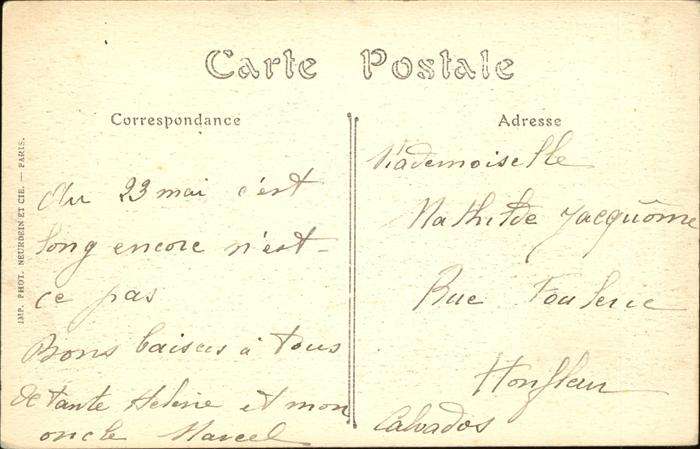 Carte Postale
Correspondance
Adresse
IMP. PHOT. NEURDEIN ET CIE. — PARIS.
Au 23 mai c'est
long encore n'est-
ce pas
Bons baisers à tous
de tante Helène et mon
oncle Marcel
Mademoiselle
Mathilde Jacquôme
Rue Foulerie
Honfleur
Calvados